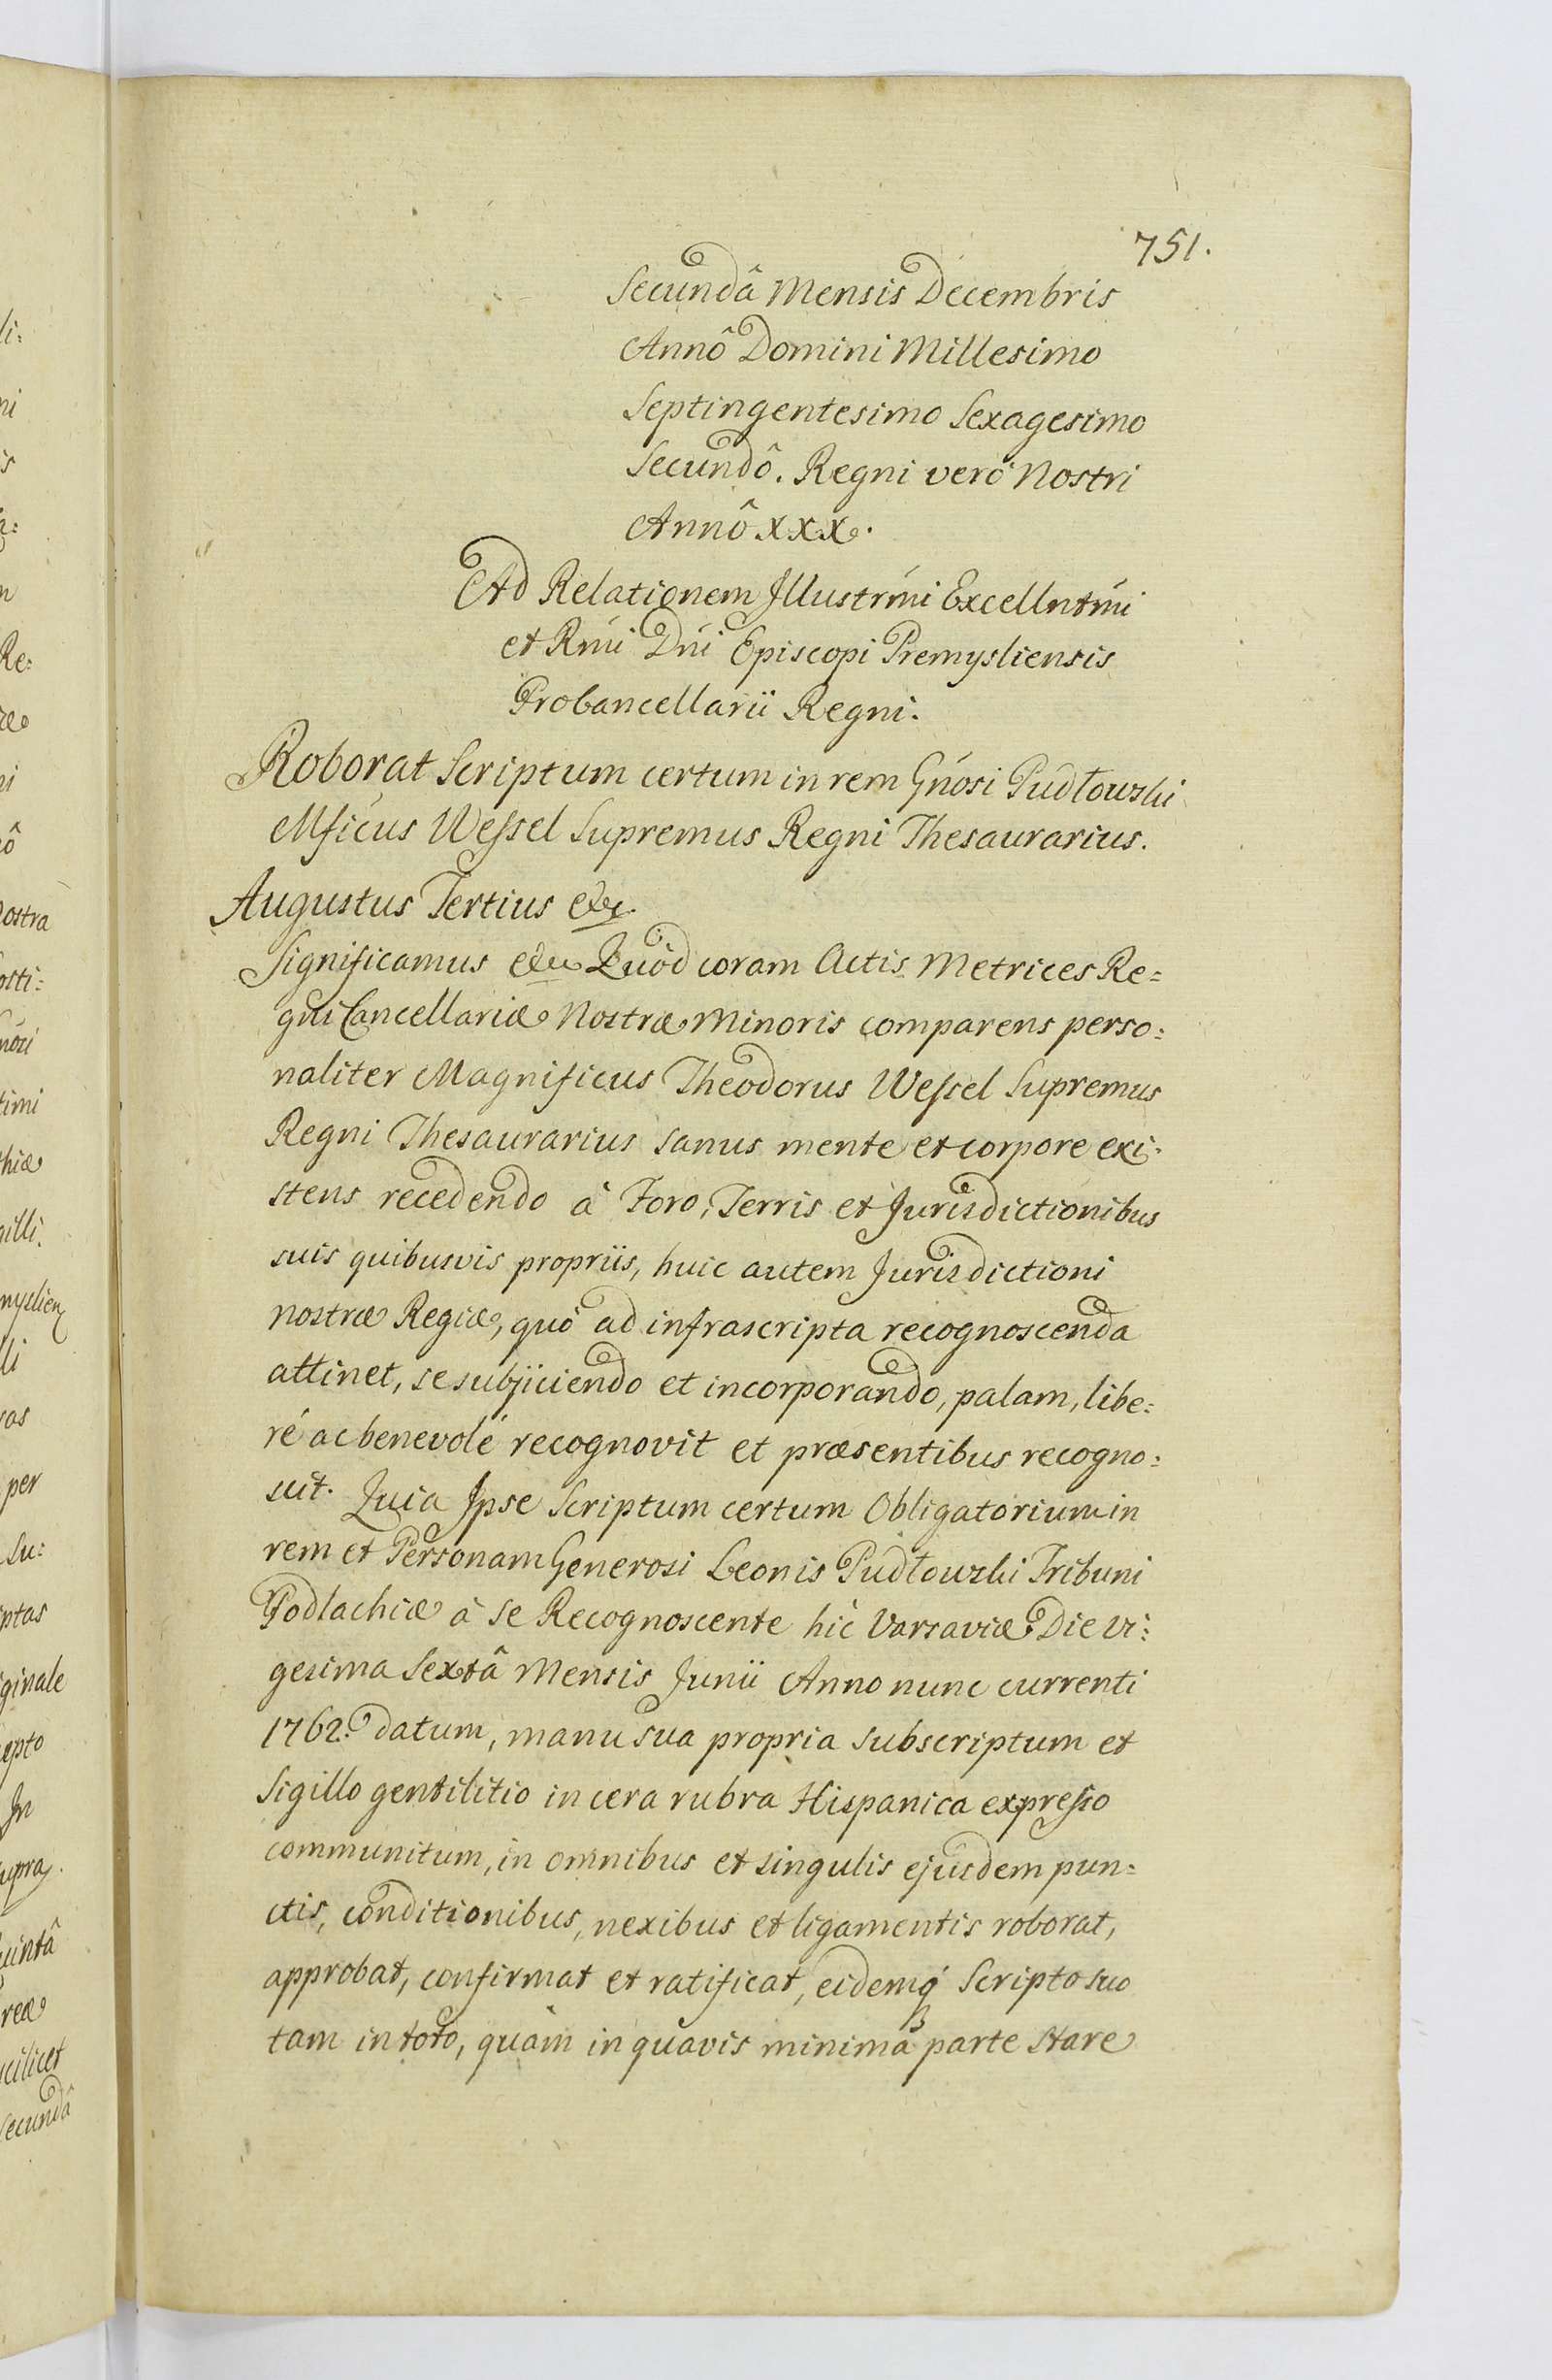 751.
Secundâ Mensis Decembris
Annô Domini Millesimo
Septingentesimo Sexagesimo
Secundô. Regni verò Nostri
Annô XXX.
Ad Relationem Illustrmi Excellntmi
et Rmi Dni Episcopi Premysliensis
Procancellarii Regni.
Roborat Scriptum certum in rem Gnosi Pudłowski
Mficus Wessel Supremus Regni Thesaurarius.
Augustus Tertius &c.
Significamus &c Quòd coram Actis Metrices Re=
gni Cancellariæ Nostræ Minoris comparens perso=
naliter Magnificus Theodorus Wessel Supremus
Regni Thesaurarius sanus mente et corpore exi=
stens recedendo à Foro, Terris et Jurisdictionibus
suis quibusvis propriis, huic autem Jurisdictioni
nostræ Regiæ, quò ad infrascripta recognoscenda
attinet, se subjiciendo et incorporando, palam, libe=
ré ac benevolé recognovit et præsentibus recogno=
scit. Quia Ipse Scriptum certum Obligatorium in
rem et Personam Generosi Leonis Pudłowski Tribuni
Podlachiæ à se Recognoscente hîc Varsaviæ Die vi=
gesima Sextâ Mensis Junii Anno nunc currenti
1762. datum, manu sua propria subscriptum et
Sigillo gentilitio in cera rubra Hispanica expresso
communitum, in omnibus et singulis ejusdem pun=
ctis, conditionibus, nexibus et ligamentis roborat,
approbat, confirmat et ratificat, eidemq́ Scripto suo
tam in toto, quàm in quavis minima parte stare